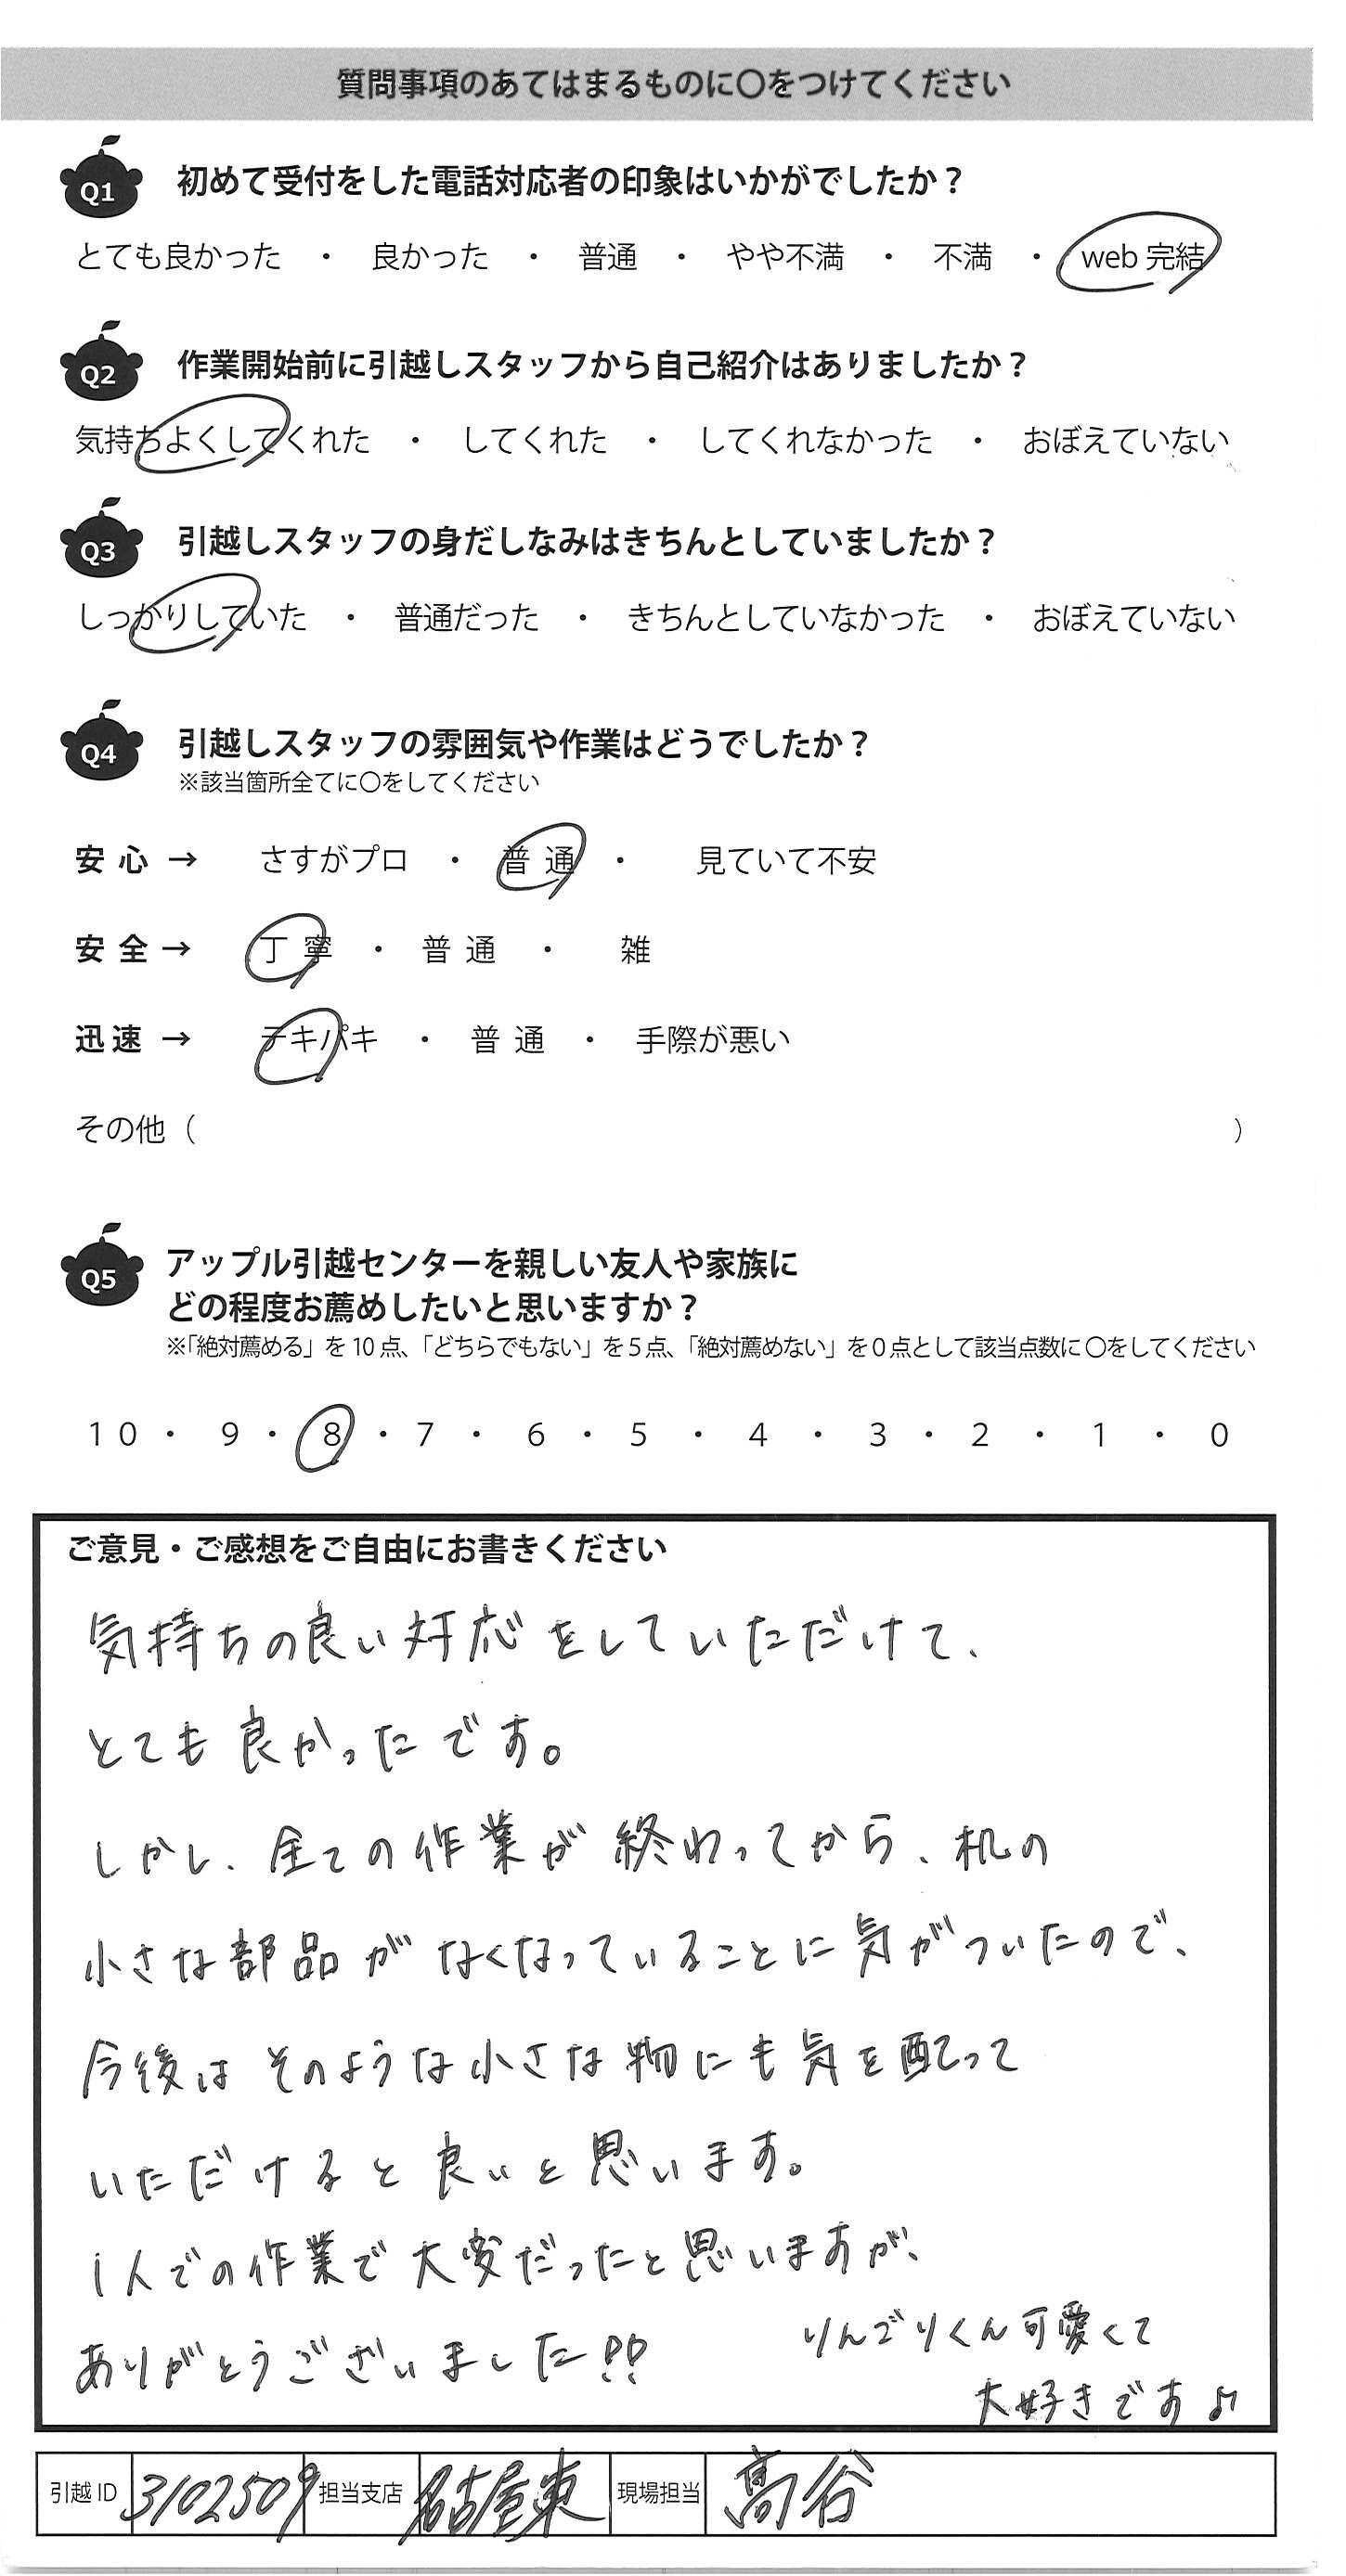 質問事項のあてはまるものに〇をつけてください
Q1 初めて受付をした電話対応者の印象はいかがでしたか？
とても良かった ・ 良かった ・ 普通 ・ やや不満 ・ 不満 ・ web 完結
Q2 作業開始前に引越しスタッフから自己紹介はありましたか？
気持ちよくしてくれた ・ してくれた ・ してくれなかった ・ おぼえていない
Q3 引越しスタッフの身だしなみはきちんとしていましたか？
しっかりしていた ・ 普通だった ・ きちんとしていなかった ・ おぼえていない
Q4 引越しスタッフの雰囲気や作業はどうでしたか？
※該当箇所全てに〇をしてください
安心 → さすがプロ ・ 普通 ・ 見ていて不安
安全 → 丁寧 ・ 普通 ・ 雑
迅速 → テキパキ ・ 普通 ・ 手際が悪い
その他（ ）
Q5 アップル引越センターを親しい友人や家族に
どの程度お薦めしたいと思いますか？
※「絶対薦める」を 10 点、「どちらでもない」を 5 点、「絶対薦めない」を 0 点として該当点数に 〇をしてください
10 ・ 9 ・ 8 ・ 7 ・ 6 ・ 5 ・ 4 ・ 3 ・ 2 ・ 1 ・ 0
ご意見・ご感想をご自由にお書きください
気持ちの良い対応をしていただけて、
とても良かったです。
しかし、全ての作業が終わってから、机の
小さな部品がなくなっていることに気がついたので、
今後はそのような小さな物にも気を配って
いただけると良いと思います。
1人での作業で大変だったと思いますが、
ありがとうございました!!
りんごりくん可愛くて
大好きです♪
引越 ID 3102509 担当支店 名古屋東 現場担当 髙谷